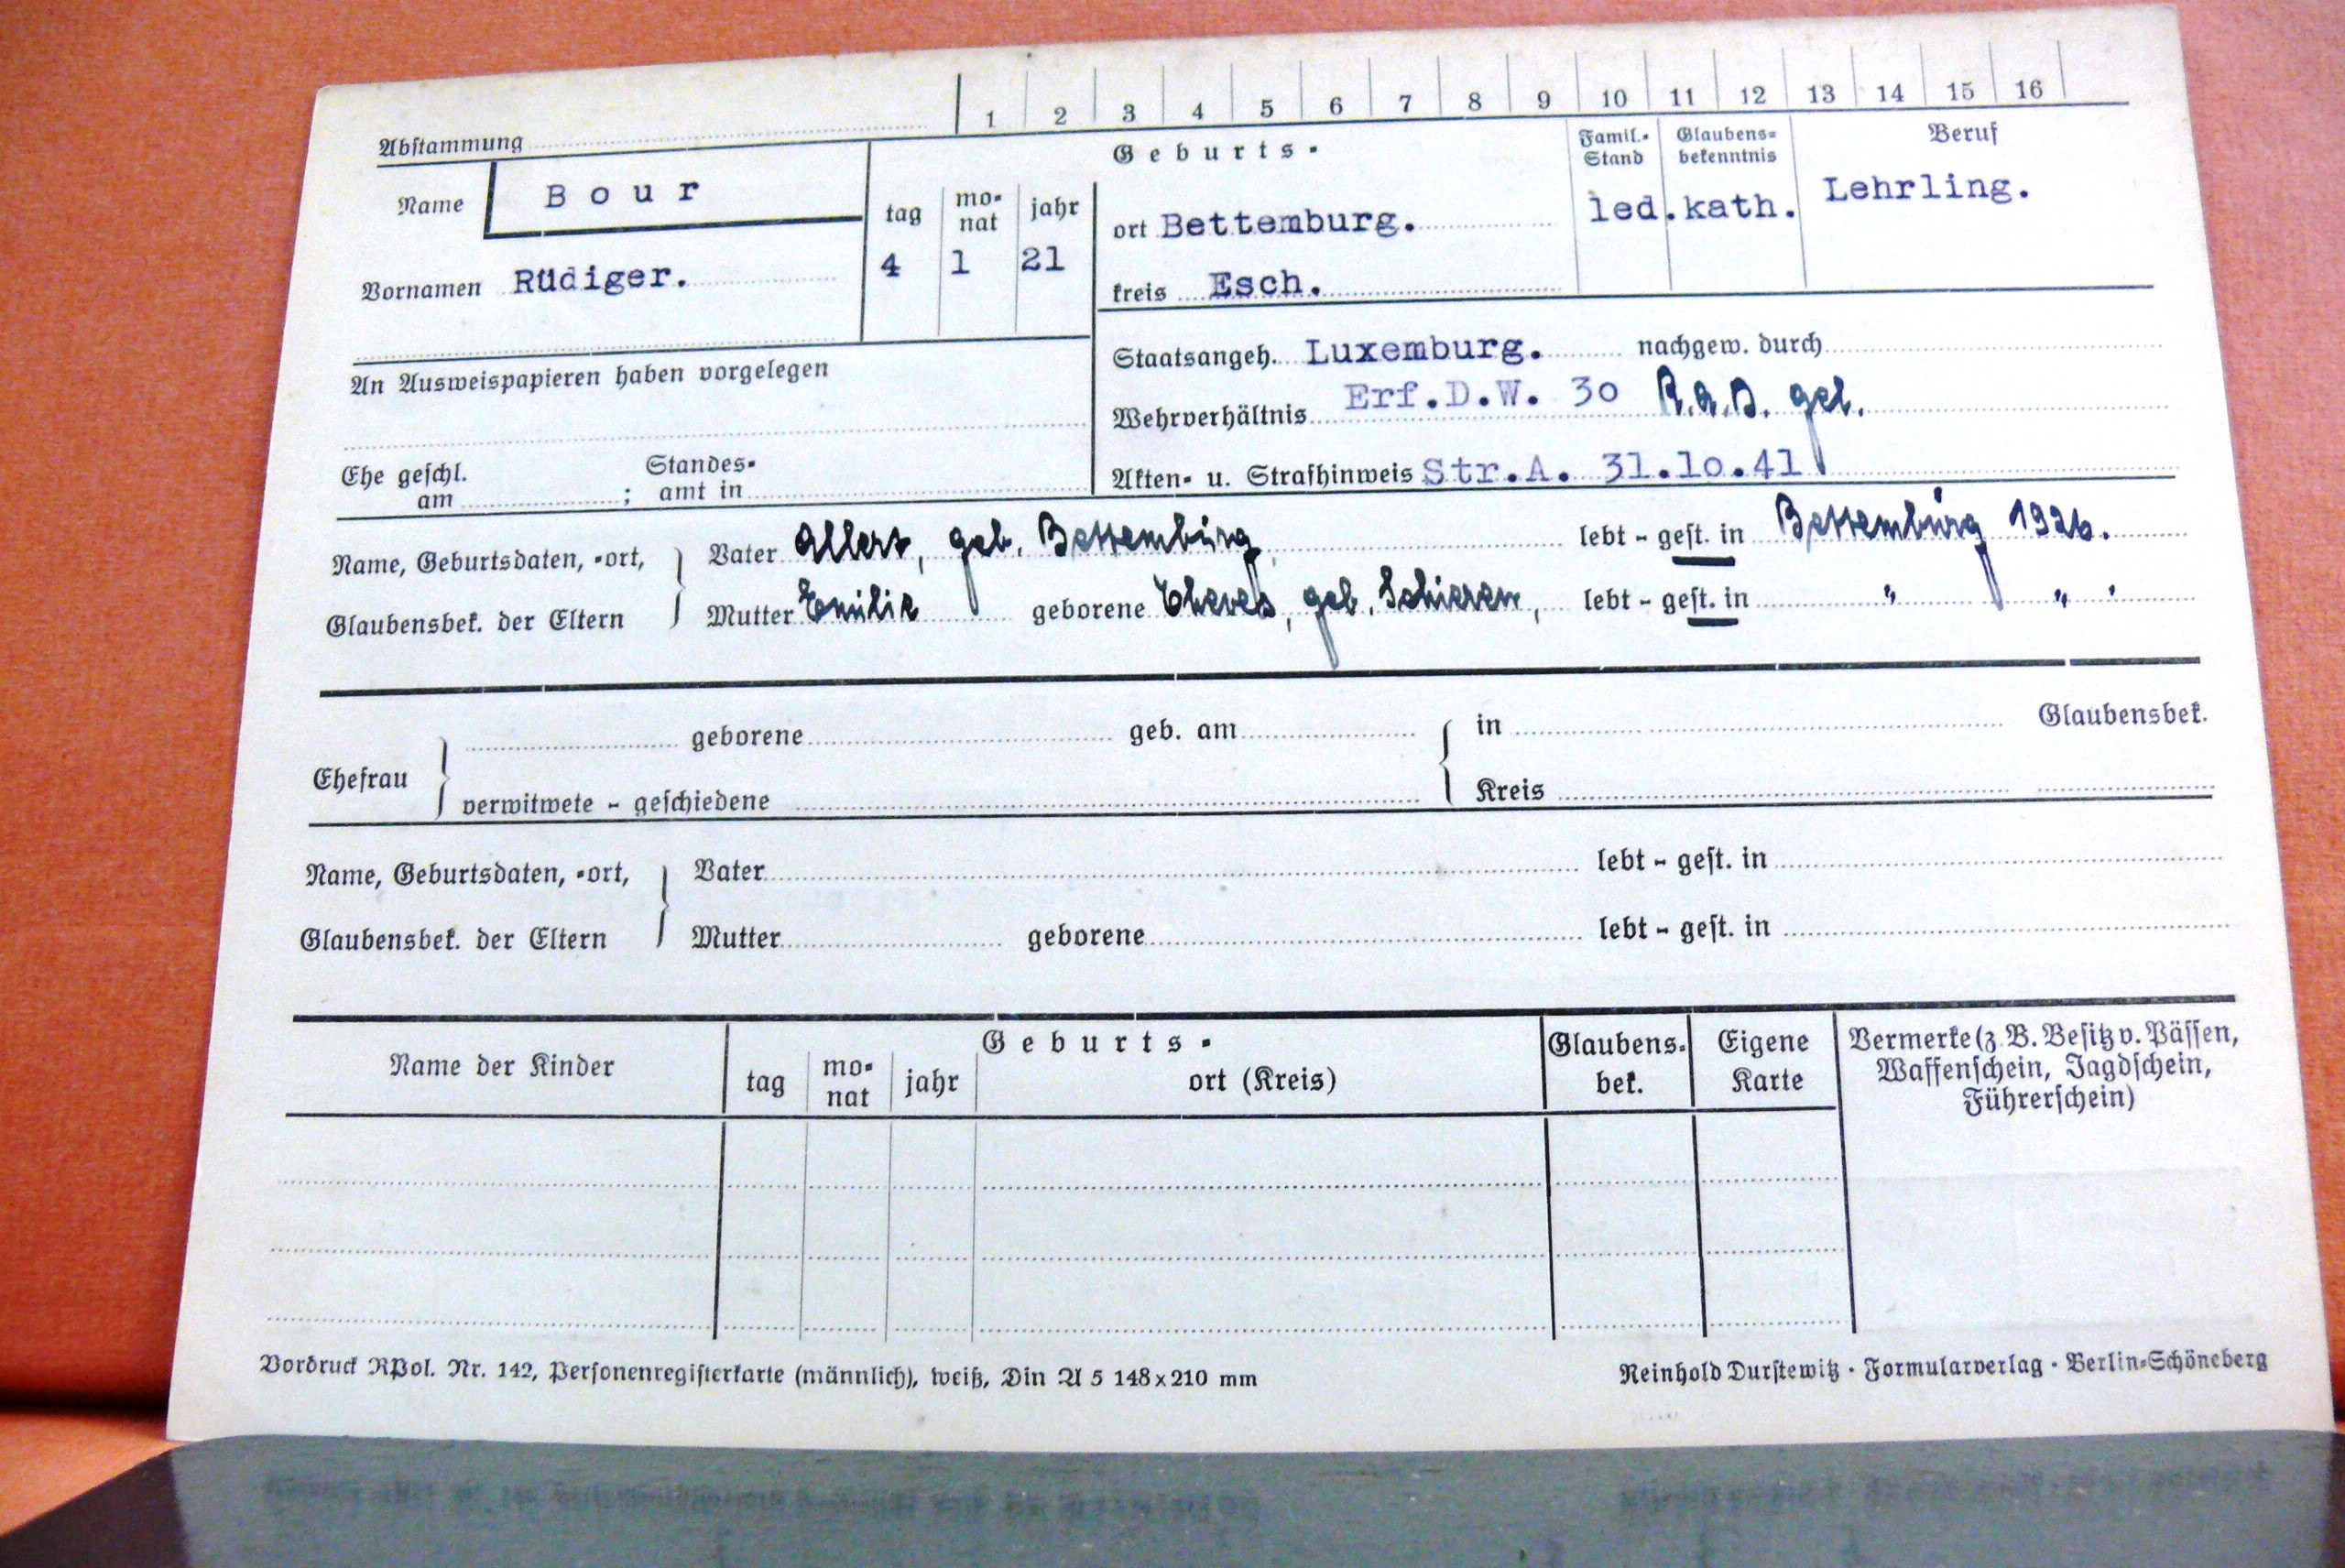 1 2 3 4 5 6 7 8 9 10 11 12 13 14 15 16
Abstammung
Name Bour
Vornamen Rüdiger.
Geburts-
tag monat jahr
4 1 21
ort Bettemburg.
kreis Esch.
Famil.-Stand
led.
Glaubensbekenntnis
kath.
Beruf
Lehrling.
An Ausweispapieren haben vorgelegen
Staatsangeh. Luxemburg. nachgew. durch
Wehrverhältnis Erf.D.W. 30 R.A.D. gel.
Akten- u. Strafhinweis Str.A. 31.10.41
Ehe geschl. am ; Standesamt in
Name, Geburtsdaten, -ort,
Glaubensbek. der Eltern
Vater Albert, geb. Bettemburg lebt - gest. in Bettemburg 1926.
Mutter Emilie geborene geb. Schieren, lebt - gest. in " " .
Ehefrau
geborene geb. am in Glaubensbek.
verwitwete - geschiedene Kreis
Name, Geburtsdaten, -ort,
Glaubensbek. der Eltern
Vater lebt - gest. in
Mutter geborene lebt - gest. in
Name der Kinder
Geburts-
tag monat jahr ort (Kreis)
Glaubens-
bek.
Eigene
Karte
Vermerke (z. B. Besitz v. Pässen,
Waffenschein, Jagdschein,
Führerschein)
Vordruck RPol. Nr. 142, Personenregisterkarte (männlich), weiß, Din A 5 148x210 mm
Reinhold Durstewitz · Formularverlag · Berlin-Schöneberg